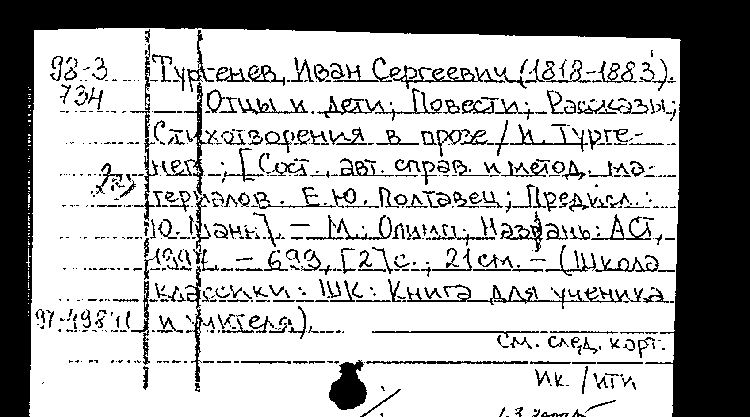 98-3 Тургенев, Иван Сергеевич (1818-1883).
734 Отцы и дети; Повести; Рассказы;
Стихотворения в прозе / И. Турге-
нев; [Сост., авт. справ. и метод. ма-
териалов. Е.Ю. Полтавец; Предисл.:
Ю. Манн]. - М.: Олимп; Назрань: АСТ,
1997. - 699, [2] с.; 21 см. - (Школа
классики: ШК: Книга для ученика
97-49871 и учителя).
см. след. карт.
ик. / ити